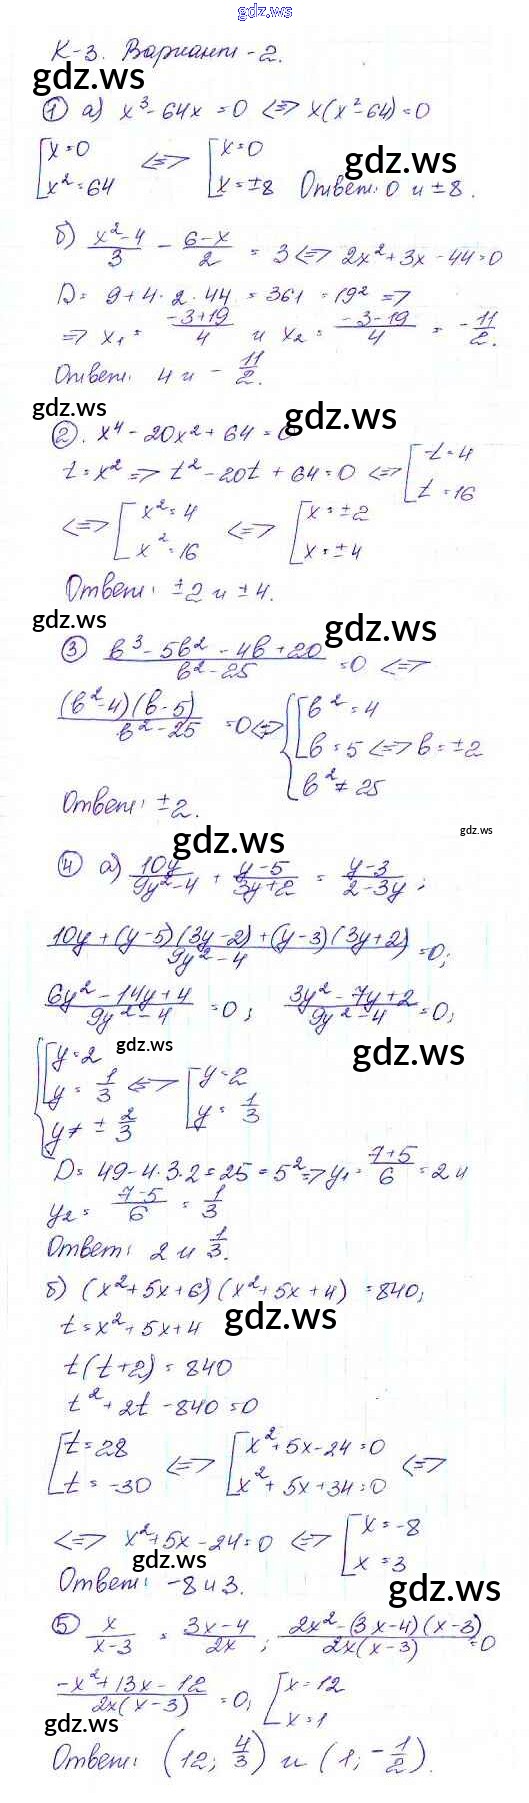 gdz.ws
К-3. Вариант-2.
gdz.ws
① а) x³ - 64x = 0 <=> x(x² - 64) = 0
[x = 0 <=> [x = 0
x² = 64 x = ±8 Ответ: 0 и ±8.
gdz.ws
б) (x² - 4)/3 - (6 - x)/2 = 3 <=> 2x² + 3x - 44 = 0
D = 9 + 4 · 2 · 44 = 361 = 19² =>
=> x₁ = (-3 + 19)/4 и x₂ = (-3 - 19)/4 = -11/2.
Ответ: 4 и -11/2.
gdz.ws gdz.ws
②. x⁴ - 20x² + 64 = 0
t = x² => t² - 20t + 64 = 0 <=> [t = 4
t = 16
<=> [x² = 4 <=> [x = ±2
x² = 16 x = ±4
Ответ: ±2 и ±4.
gdz.ws gdz.ws
③ (b³ - 5b² - 4b + 20)/(b² - 25) = 0 <=>
(b² - 4)(b - 5)/(b² - 25) = 0 <=> {[b² = 4
b = 5 <=> b = ±2
b² ≠ 25
Ответ: ±2.
gdz.ws gdz.ws
④ а) 10y/(9y² - 4) + (y - 5)/(3y + 2) = (y - 3)/(2 - 3y);
(10y + (y - 5)(3y - 2) + (y - 3)(3y + 2))/(9y² - 4) = 0;
(6y² - 14y + 4)/(9y² - 4) = 0; (3y² - 7y + 2)/(9y² - 4) = 0;
gdz.ws gdz.ws
{[y = 2
y = 1/3 <=> [y = 2
y ≠ ±2/3 y = 1/3
D = 49 - 4 · 3 · 2 = 25 = 5² => y₁ = (7 + 5)/6 = 2 и
y₂ = (7 - 5)/6 = 1/3
Ответ: 2 и 1/3.
б) (x² + 5x + 6)(x² + 5x + 4) = 840;
gdz.ws
t = x² + 5x + 4
t(t + 2) = 840
t² + 2t - 840 = 0
[t = 28 <=> [x² + 5x - 24 = 0 <=>
t = -30 x² + 5x + 34 = 0
<=> x² + 5x - 24 = 0 <=> [x = -8
x = 3
gdz.ws
Ответ: -8 и 3.
gdz.ws
⑤ x/(x - 3) = (3x - 4)/2x; (2x² - (3x - 4)(x - 3))/(2x(x - 3)) = 0
(-x² + 13x - 12)/(2x(x - 3)) = 0; [x = 12
x = 1
gdz.ws
Ответ: (12; 4/3) и (1; -1/2).
gdz.ws